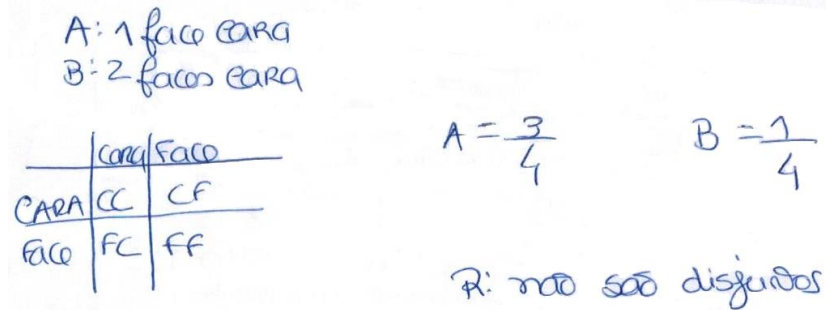 A: 1 face cara
B: 2 faces cara
A = 3/4
B = 1/4
cara Face
CARA CC CF
Face FC FF
R: não são disjuntos